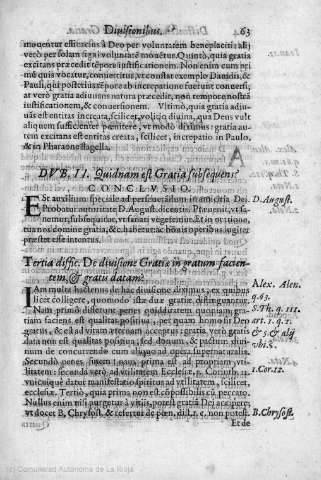 Diuisionibus. 63
mouentur efficacius à Deo per voluntatem beneplaciti: alij
verò per solam signi voluntatē mouētur. Quintò, quia gratia
excitans præcedit tēpore iustificationem. Non enim cum pri
mè quis vocatur, conuertitur, vt constat exemplo Dauidis, &
Pauli, qui postea tēpore ab increpatione fuerunt conuersi,
at verò gratia adiuuans natura præcedit, non tempore nostrā
iustificationem, & conuersionem. Vltimò, quia gratia adiu-
uās est entitas increata, scilicet, volitio diuina, qua Deus vult
aliquem sufficienter pœnitere, vt modò diximus: gratia au-
tem excitans est entitas creata, scilicet, increpatio in Paulo,
& in Pharaone flagella.
DVB. II. Quidnam est Gratia subsequens?
CONCLVSIO.
Est auxilium speciale ad perseuerandum in amicitia Dei.
Probatur autoritate D. August. dicentis: Præuenit, vt sa-
nemur, subsequitur, vt sanati vegetemur. & in oration
ita nos domine gratia, &c. habetur ac bonis operibus iugiter
præstet esse intentos.
D. August.
Tertia diffic. De diuisione Gratiæ in gratum facien-
tem, & gratis datam?
Iam nunc hactenus de hac diuisione diximus, ex quibus
licet colligere, quomodo istæ duæ gratiæ distinguantur.
Nam primò differunt penes quidditatem: quoniam gra-
tiam faciens est qualitas positiua, per quam homo fit Deo
gratus, & ad vitam æternam acceptus: gratia verò gratis
data non est qualitas positiua, sed donum, & pactum diui-
num de concurrendo cum aliquo ad opera supernaturalia.
Secundò penes finem, nam prima est ad propriam vti-
litatem: secunda verò ad vtilitatem Ecclesiæ. 1. Corint. 12.
vnicuique datur manifestatio spiritus ad vtilitatem, scilicet,
ecclesiæ. Tertiò, quia prima non est compossibilis cū peccato.
Nullus enim nisi purgetur à vitijs, potest gratiā Dei accipere,
vt docet B. Chrysost. & refertur de pœn. dist. 1. c. non potest.
Alex. Alen.
q. 63.
S. Th. q. 111.
art. 1. q. 1.
& 5. & alij
vbi s.
1. Cor. 12.
B. Chrysost.
Et de
(c) Comunidad Autónoma de La Rioja